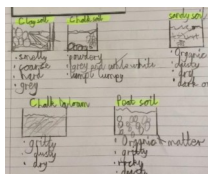 Clay soil
Chalk soil
Sandy soil
• smelly
• coarse
• hard
• grey
• powdery
• grey and white
• lumpy
• Organic
• dusty
• dry
• dark
Peat soil
• gritty
• dusty
• dry
• Organic matter
• gritty
• rocky
• dusty